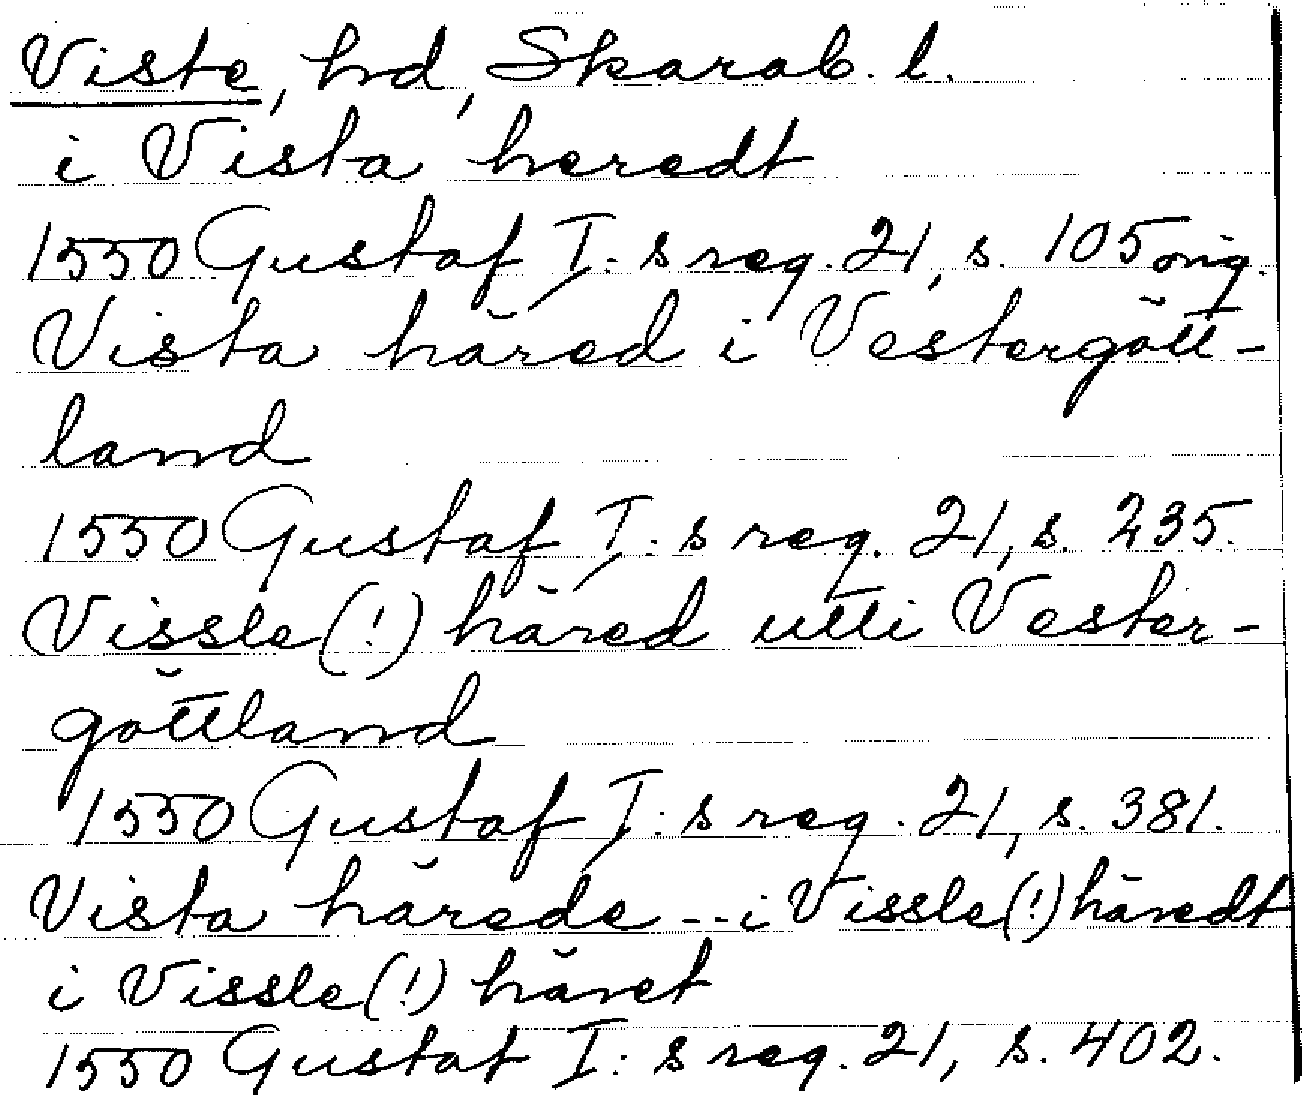 Viste, hd, Skarab. l.
i Vista heredt
1550 Gustaf I: s reg. 21, s. 105 orig.
Vista häred i Vestergött-
land
1550 Gustaf I: s reg. 21, s. 235.
Vissle (!) häred utti Vester-
göttland
1550 Gustaf I: s reg. 21, s. 381.
Vista härede -- i Vissle (!) häredt
i Vissle (!) häret
1550 Gustaf I: s reg. 21, s. 402.